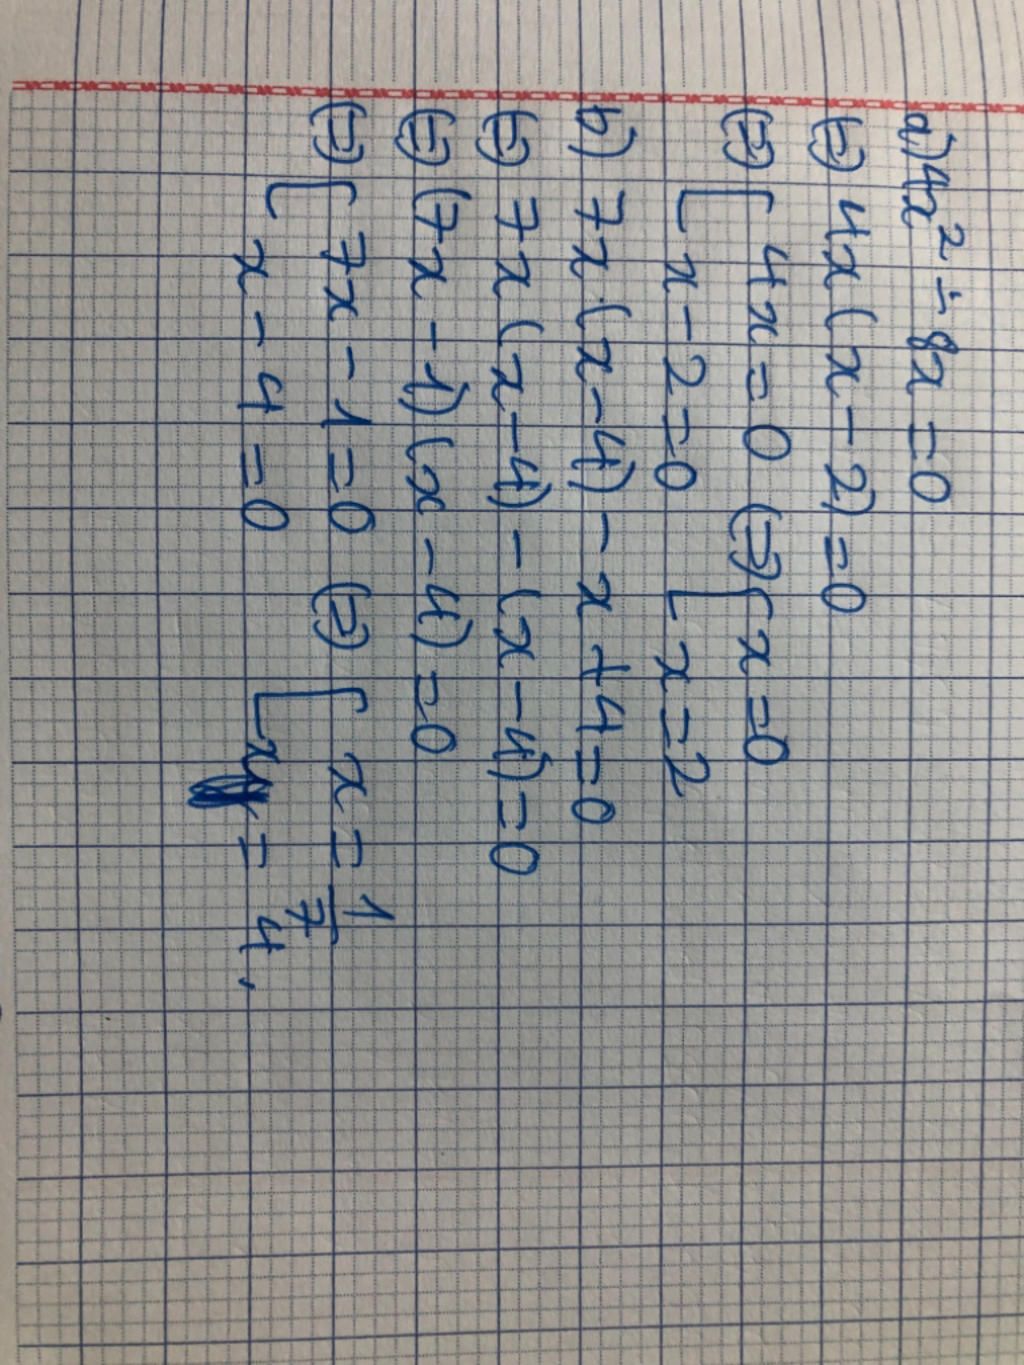 a) 4x² - 8x = 0
(=) 4x(x - 2) = 0
(=) [ 4x = 0 (=) [ x = 0
[ x - 2 = 0 [ x = 2
b) 7x.(x - 4) - x + 4 = 0
(=) 7x(x - 4) - (x - 4) = 0
(=) (7x - 1)(x - 4) = 0
(=) [ 7x - 1 = 0 (=) [ x = 1/7
[ x - 4 = 0 [ x = 4.